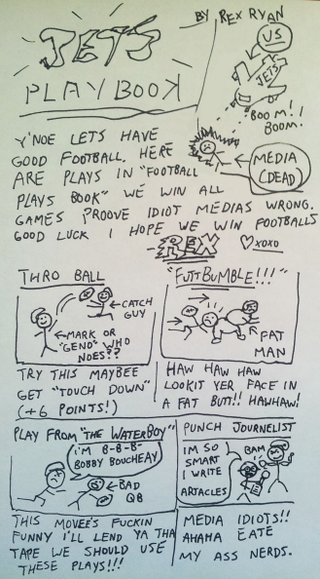 JETS
PLAYBOOK
BY REX RYAN
US
JETS
BOOM!!
BOOM.
MEDIA
(DEAD)
Y'NOE LETS HAVE
GOOD FOOTBALL. HERE
ARE PLAYS IN "FOOTBALL
PLAYS BOOK" WE WIN ALL
GAMES PROOVE IDIOT MEDIAS WRONG.
GOOD LUCK I HOPE WE WIN FOOTBALLS
REX
♡XOXO
THRO BALL
CATCH
GUY
MARK OR
"GENO" WHO
NOES??
TRY THIS MAYBEE
GET "TOUCH DOWN"
(+6 POINTS!)
"FUTTBUMBLE!!!"
FAT
MAN
HAW HAW HAW
LOOKIT YER FACE IN
A FAT BUTT!! HAWHAW!
PLAY FROM "THE WATERBOY"
I'M B-B-B-
BOBBY BOUCHEAY
BAD
QB
THIS MOVEE'S FUCKIN
FUNNY I'LL LEND YA THA
TAPE WE SHOULD USE
THESE PLAYS!!!
PUNCH JOURNELIST
IM SO
SMART
I WRITE
ARTACLES
BAM
MEDIA IDIOTS!!
AHAMA EATE
MY ASS NERDS.